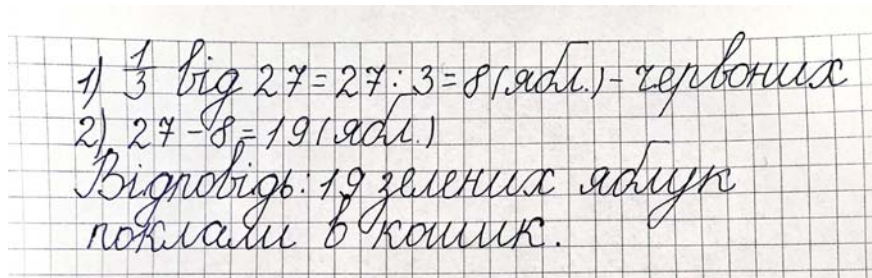 1) 1/3 від 27 = 27 : 3 = 8 (ябл.) - червоних
2) 27 - 8 = 19 (ябл.)
Відповідь: 19 зелених яблук
поклали в кошик.